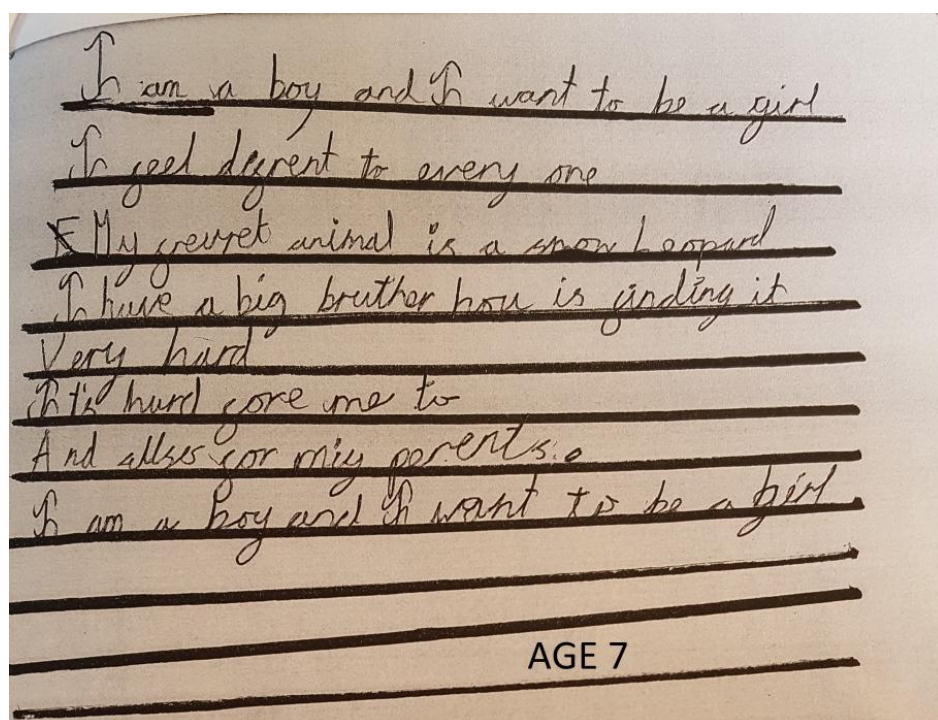 I am a boy and I want to be a girl
I feel difrent to every one
My secret animal is a snow leopard
I have a big bruther hou is finding it
Very hard
It's hard fore me to
And allses for miy perents.
I am a boy and I want to be a girl
AGE 7